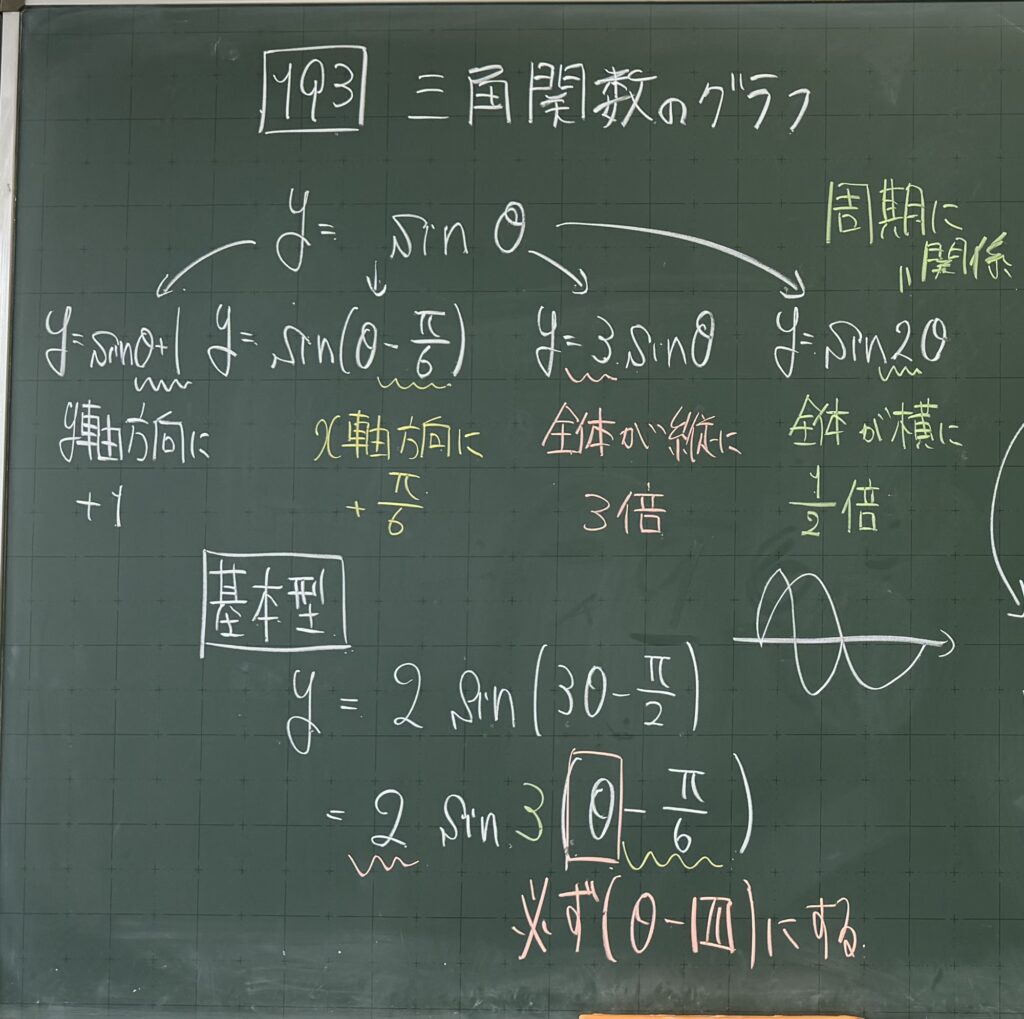 193 三角関数のグラフ
y = sin θ
周期に
関係
y=sinθ+1 y=sin(θ-π/6) y=3sinθ y=sin2θ
y軸方向に x軸方向に 全体が縦に 全体が横に
+1 +π/6 3倍 1/2倍
基本型
y = 2 sin(3θ-π/2)
= 2 sin 3(θ-π/6)
必ず(θ-)にする